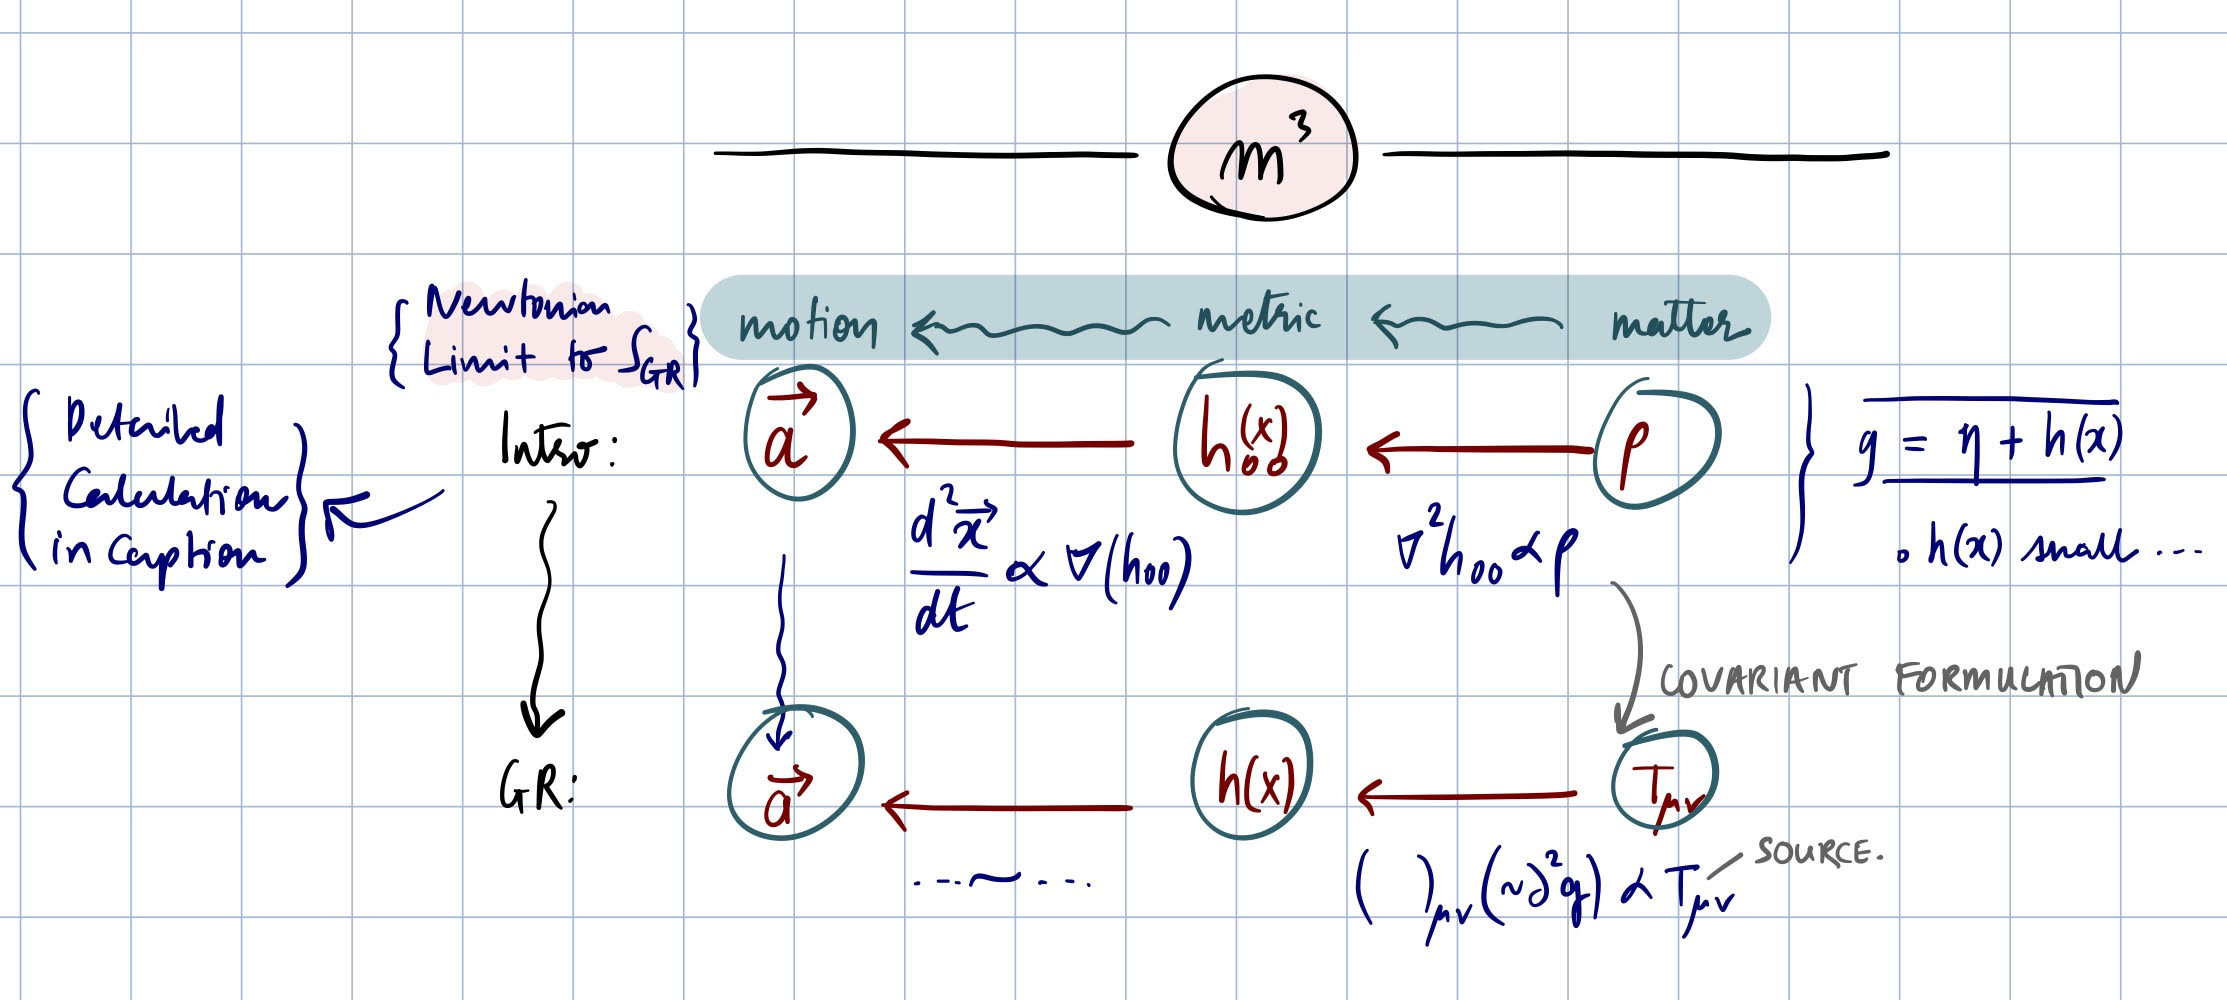 m³
{ Newtonian
Limit to S_GR }
motion ← metric ← matter
{ Detailed
Calculation
in Caption }
Intro:
a⃗ ← h₀₀(x) ← ρ
d²x⃗/dt ∝ ∇(h₀₀)
∇²h₀₀ ∝ ρ
} g = η + h(x)
. h(x) small ...
COVARIANT FORMULATION
GR:
a⃗ ← h(x) ← T_μν
...~...
( )_μν (~∂²g) ∝ T_μν
SOURCE.